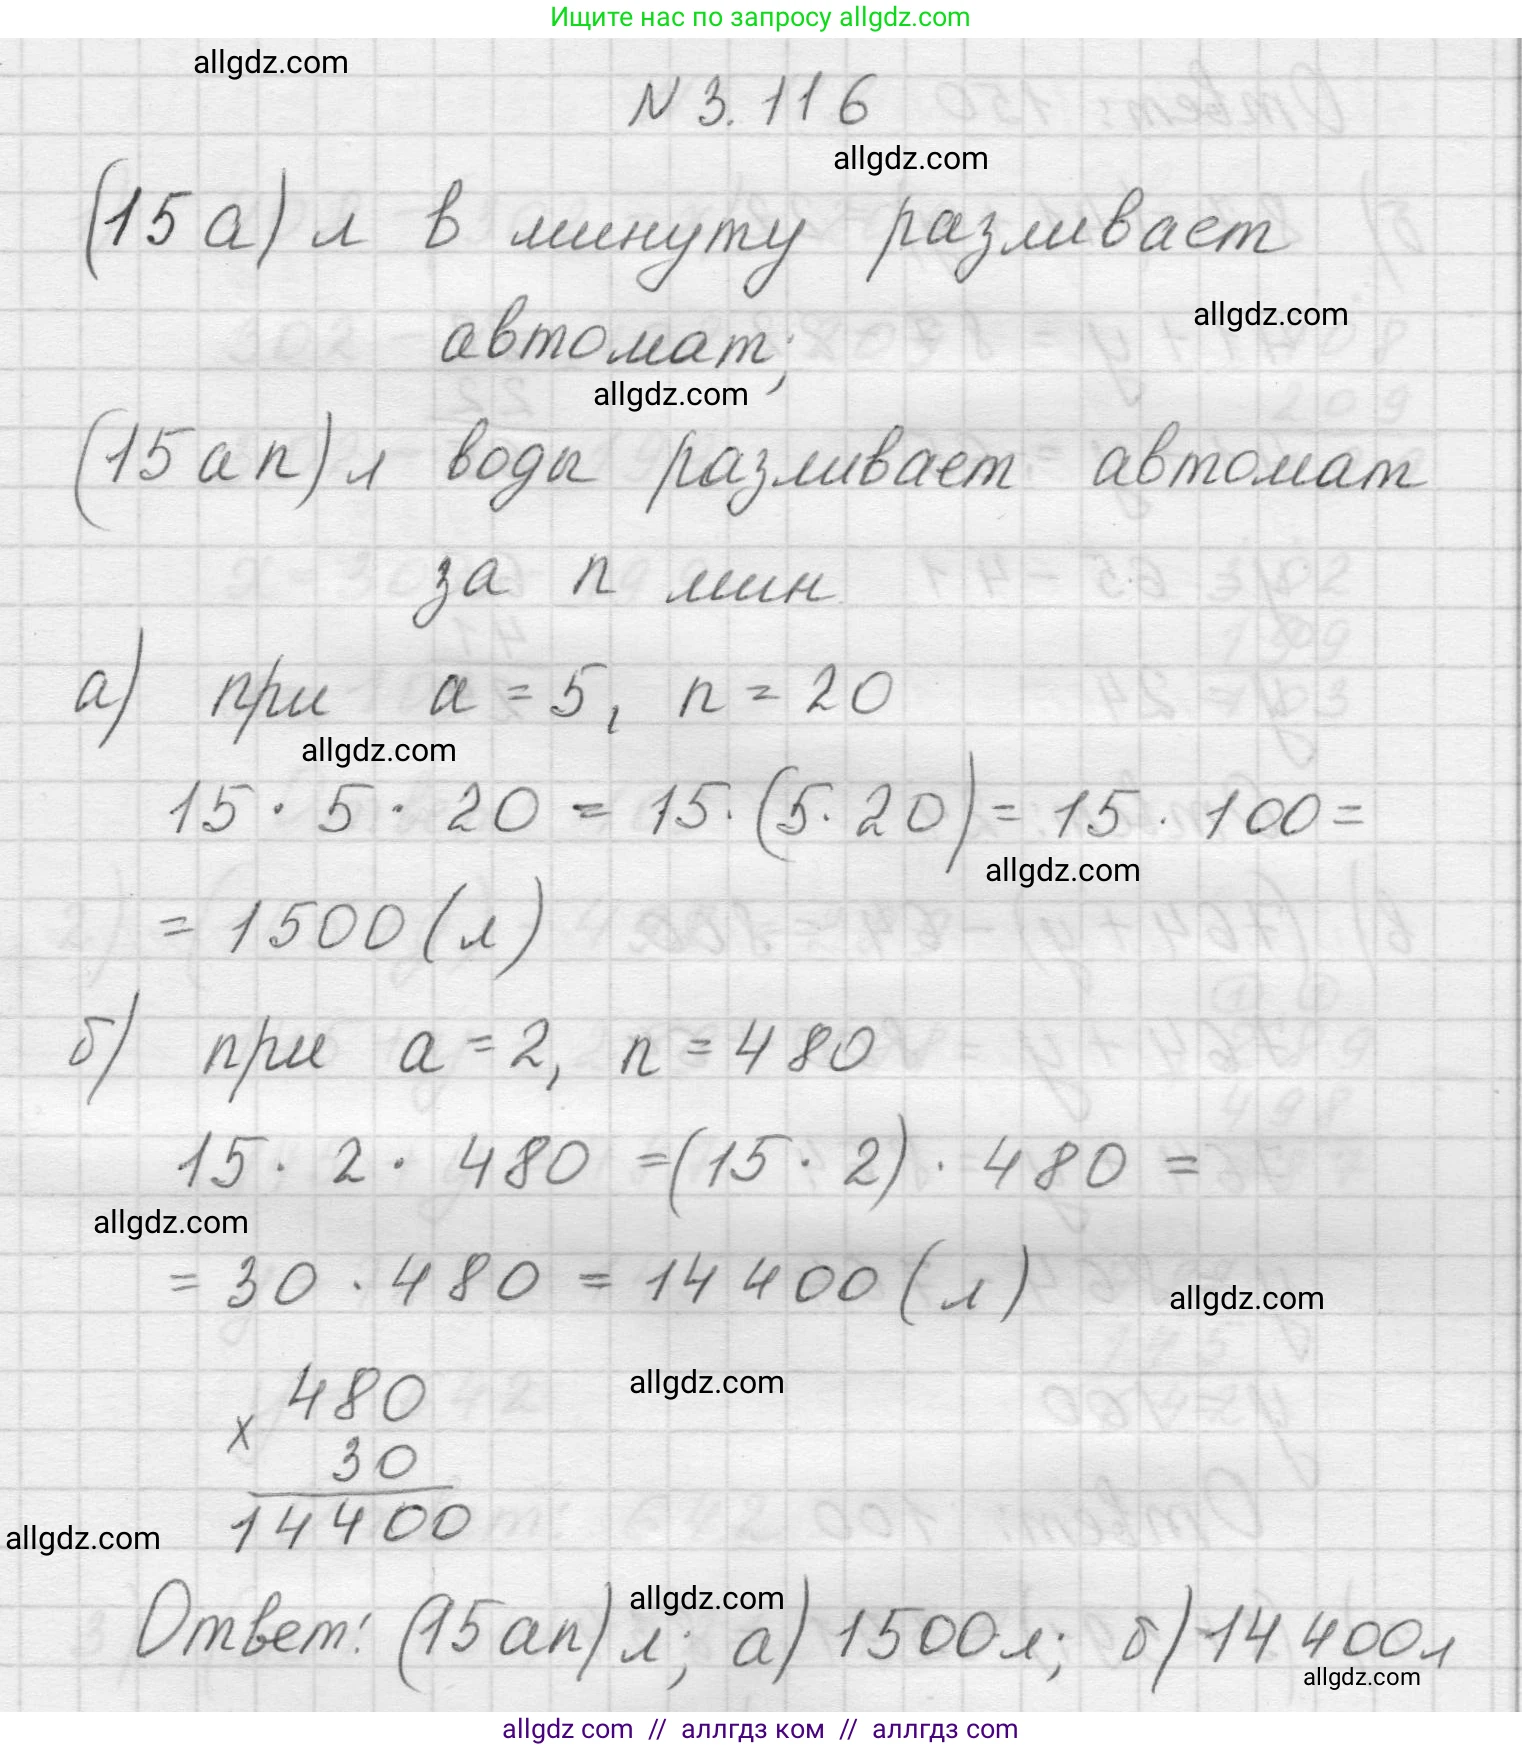 Ищите нас по запросу allgdz.com
allgdz.com
N 3.116
allgdz.com
(15a) л в минуту разливает
allgdz.com
автомат;
allgdz.com
(15an) л воды разливает автомат
за n мин
а) при a = 5, n = 20
allgdz.com
15 · 5 · 20 = 15 · (5 · 20) = 15 · 100 =
allgdz.com
= 1500 (л)
б) при a = 2, n = 480
15 · 2 · 480 = (15 · 2) · 480 =
allgdz.com
= 30 · 480 = 14 400 (л)
allgdz.com
480
allgdz.com
x
30
14400
allgdz.com
allgdz.com
Ответ: (15an) л; а) 1500 л; б) 14 400 л
allgdz.com
allgdz com // аллгдз ком // аллгдз com